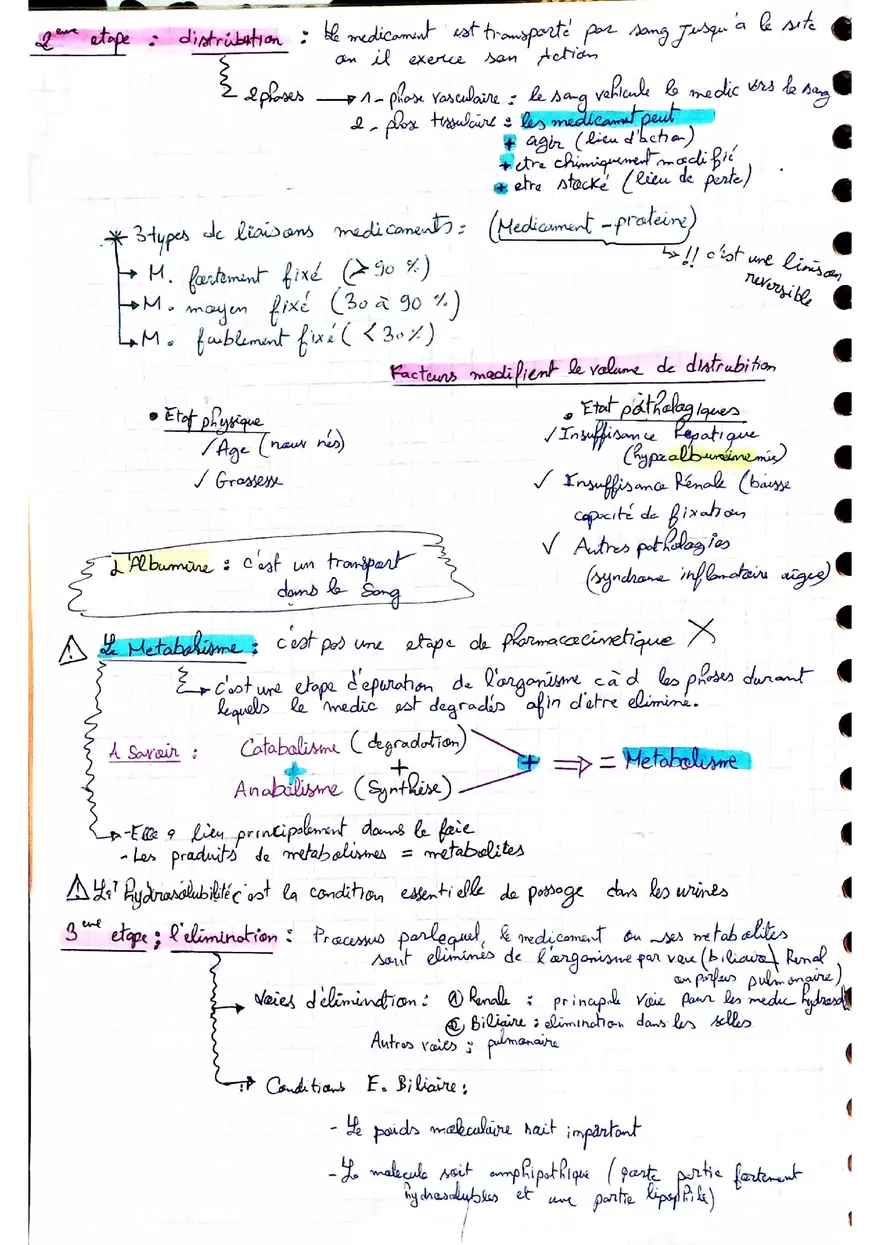 2eme etape : distribution : Le medicament est transporté par sang jusqu'à le site
ou il exerce son Action
2 phases → 1 - phase vasculaire : le sang vehicule le medic vers le sang
2 - phase tissulaire : les medicamet peut
+ agir (lieu d'action)
+ etre chimiquement modifié
+ etre stocké (lieu de perte)
* 3 types de liaisons medicaments : (Medicament - proteine)
→ !! c'est une liaison
reversible
→ M. fortement fixé (≥ 90 %)
→ M. moyen fixé (30 à 90 %)
→ M. faiblement fixé (< 30 %)
Facteurs modifient le volume de distrubition
• Etat physique
✓ Age (nouv nés)
✓ Grossesse
• Etat pathologiques
✓ Insuffisance hepatique
(hypoalbuminemie)
✓ Insuffisance Rénale (baisse
capacité de fixation
✓ Autres pathologies
(syndrome inflamatoire aigue)
L'Albumine : c'est un transport
dans le Sang
⚠ Le Metabolisme : c'est pas une etape de pharmacocinetique X
→ C'est une etape d'epuration de l'organisme càd les phases durant
lequels le medic est degradés afin d'etre eliminé.
A Savoir : Catabolisme (degradation)
+ +
Anabolisme (Synthèse)
+ ⇒ = Metabolisme
→ - Elle a lieu principalement dans le foie
- Les produits de metabolismes = metabolites
⚠ L'hydrosolubilité c'est la condition essentielle de passage dans les urines
3eme etape ; l'elimination : Processus par lequel, le medicament ou ses metabolites
sont eliminés de l'organisme par voie (biliaire) Renal
ou parfois pulmonaire)
→ Voies d'élimination : ① Renale : principale voie pour les medic hydrosol
② Biliaire : elimination dans les selles
Autres voies ; pulmonaire
→ Conditions E. Biliaire :
- Le poids moleculaire soit important
- La molecule soit amphipathique ( partie fortement
hydrosolubles et une partie lipophile)